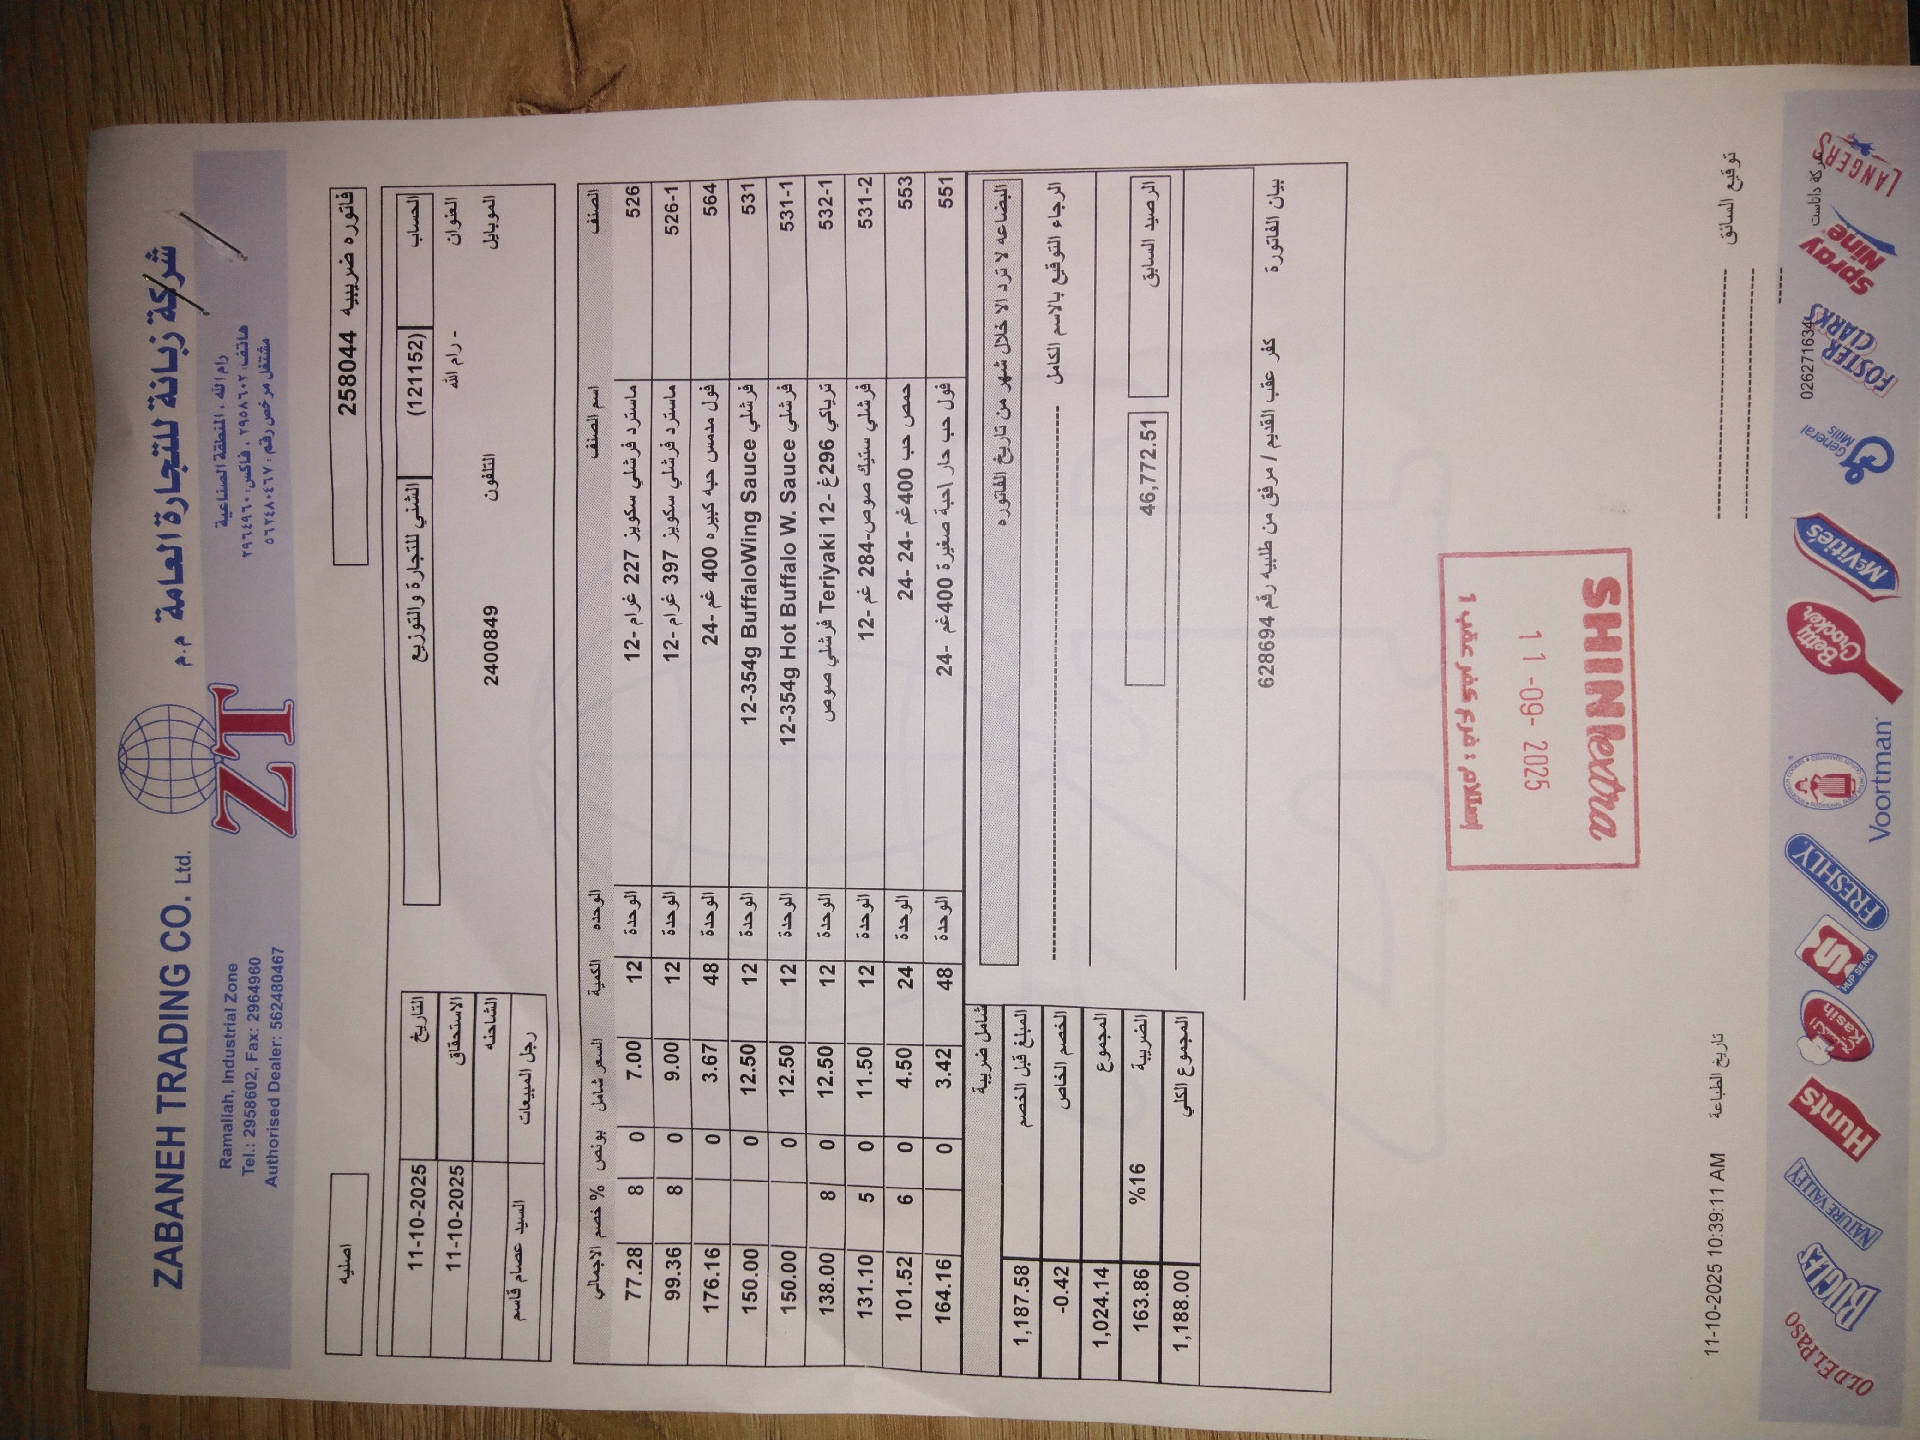 ZABANEH TRADING CO. Ltd.
شركة زبانة للتجارة العامة م.م
ZT
Ramallah, Industrial Zone
Tel.: 2958602, Fax: 2964960
Authorised Dealer: 562480467
رام الله ، المنطقة الصناعية
هاتف: ٢٩٥٨٦٠٢ ، فاكس: ٢٩٦٤٩٦٠
مشتغل مرخص رقم: ٥٦٢٤٨٠٤٦٧
فاتوره ضريبيه 258044
اصليه
الحساب (121152) الشني للتجارة والتوزيع
العنوان - رام الله
الموبايل التلفون 2400849
التاريخ 11-10-2025
الاستحقاق 11-10-2025
الشاحنه
رجل المبيعات السيد عصام قاسم
الصنف اسم الصنف الوحده الكمية السعر شامل بونص % خصم الاجمالي
526 ماسترد فرشلي سكويز 227 غرام -12 الوحدة 12 7.00 0 8 77.28
526-1 ماسترد فرشلي سكويز 397 غرام -12 الوحدة 12 9.00 0 8 99.36
564 فول مدمس حبه كبيره 400 غم -24 الوحدة 48 3.67 0 176.16
531 فرشلي 12-354g BuffaloWing Sauce الوحدة 12 12.50 0 150.00
531-1 فرشلي 12-354g Hot Buffalo W. Sauce الوحدة 12 12.50 0 150.00
532-1 ترياكي 296غ -12 Teriyaki فرشلي صوص الوحدة 12 12.50 0 8 138.00
531-2 فرشلي ستيك صوص-284 غم -12 الوحدة 12 11.50 0 5 131.10
553 حمص حب 400غم -24 -24 الوحدة 24 4.50 0 6 101.52
551 فول حب حار احبة صغيرة 400غم -24 الوحدة 48 3.42 0 164.16
البضاعه لا ترد الا خلال شهر من تاريخ الفاتوره
شامل ضريبة
الرجاء التوقيع بالاسم الكامل
المبلغ قبل الخصم 1,187.58
الخصم الخاص -0.42
المجموع 1,024.14
الضريبة %16 163.86
المجموع الكلي 1,188.00
الرصيد السابق 46,772.51
بيان الفاتورة كفر عقب القديم / مرفق من طلبيه رقم 628694
استلام : فرع كفر عقب 1
11-09-2025
SHINI extra
توقيع السائق
تاريخ الطباعة 11-10-2025 10:39:11 AM
شركة داتاست 022627163
OLD EL PASO
BUGLES
NATURE VALLEY
Hunts
الكسيح
Kasih
HUP SENG
FRESHLY
Voortman
Betty Crocker
McVities
General Mills
FOSTER CLARKS
Spray Nine
LANGERS